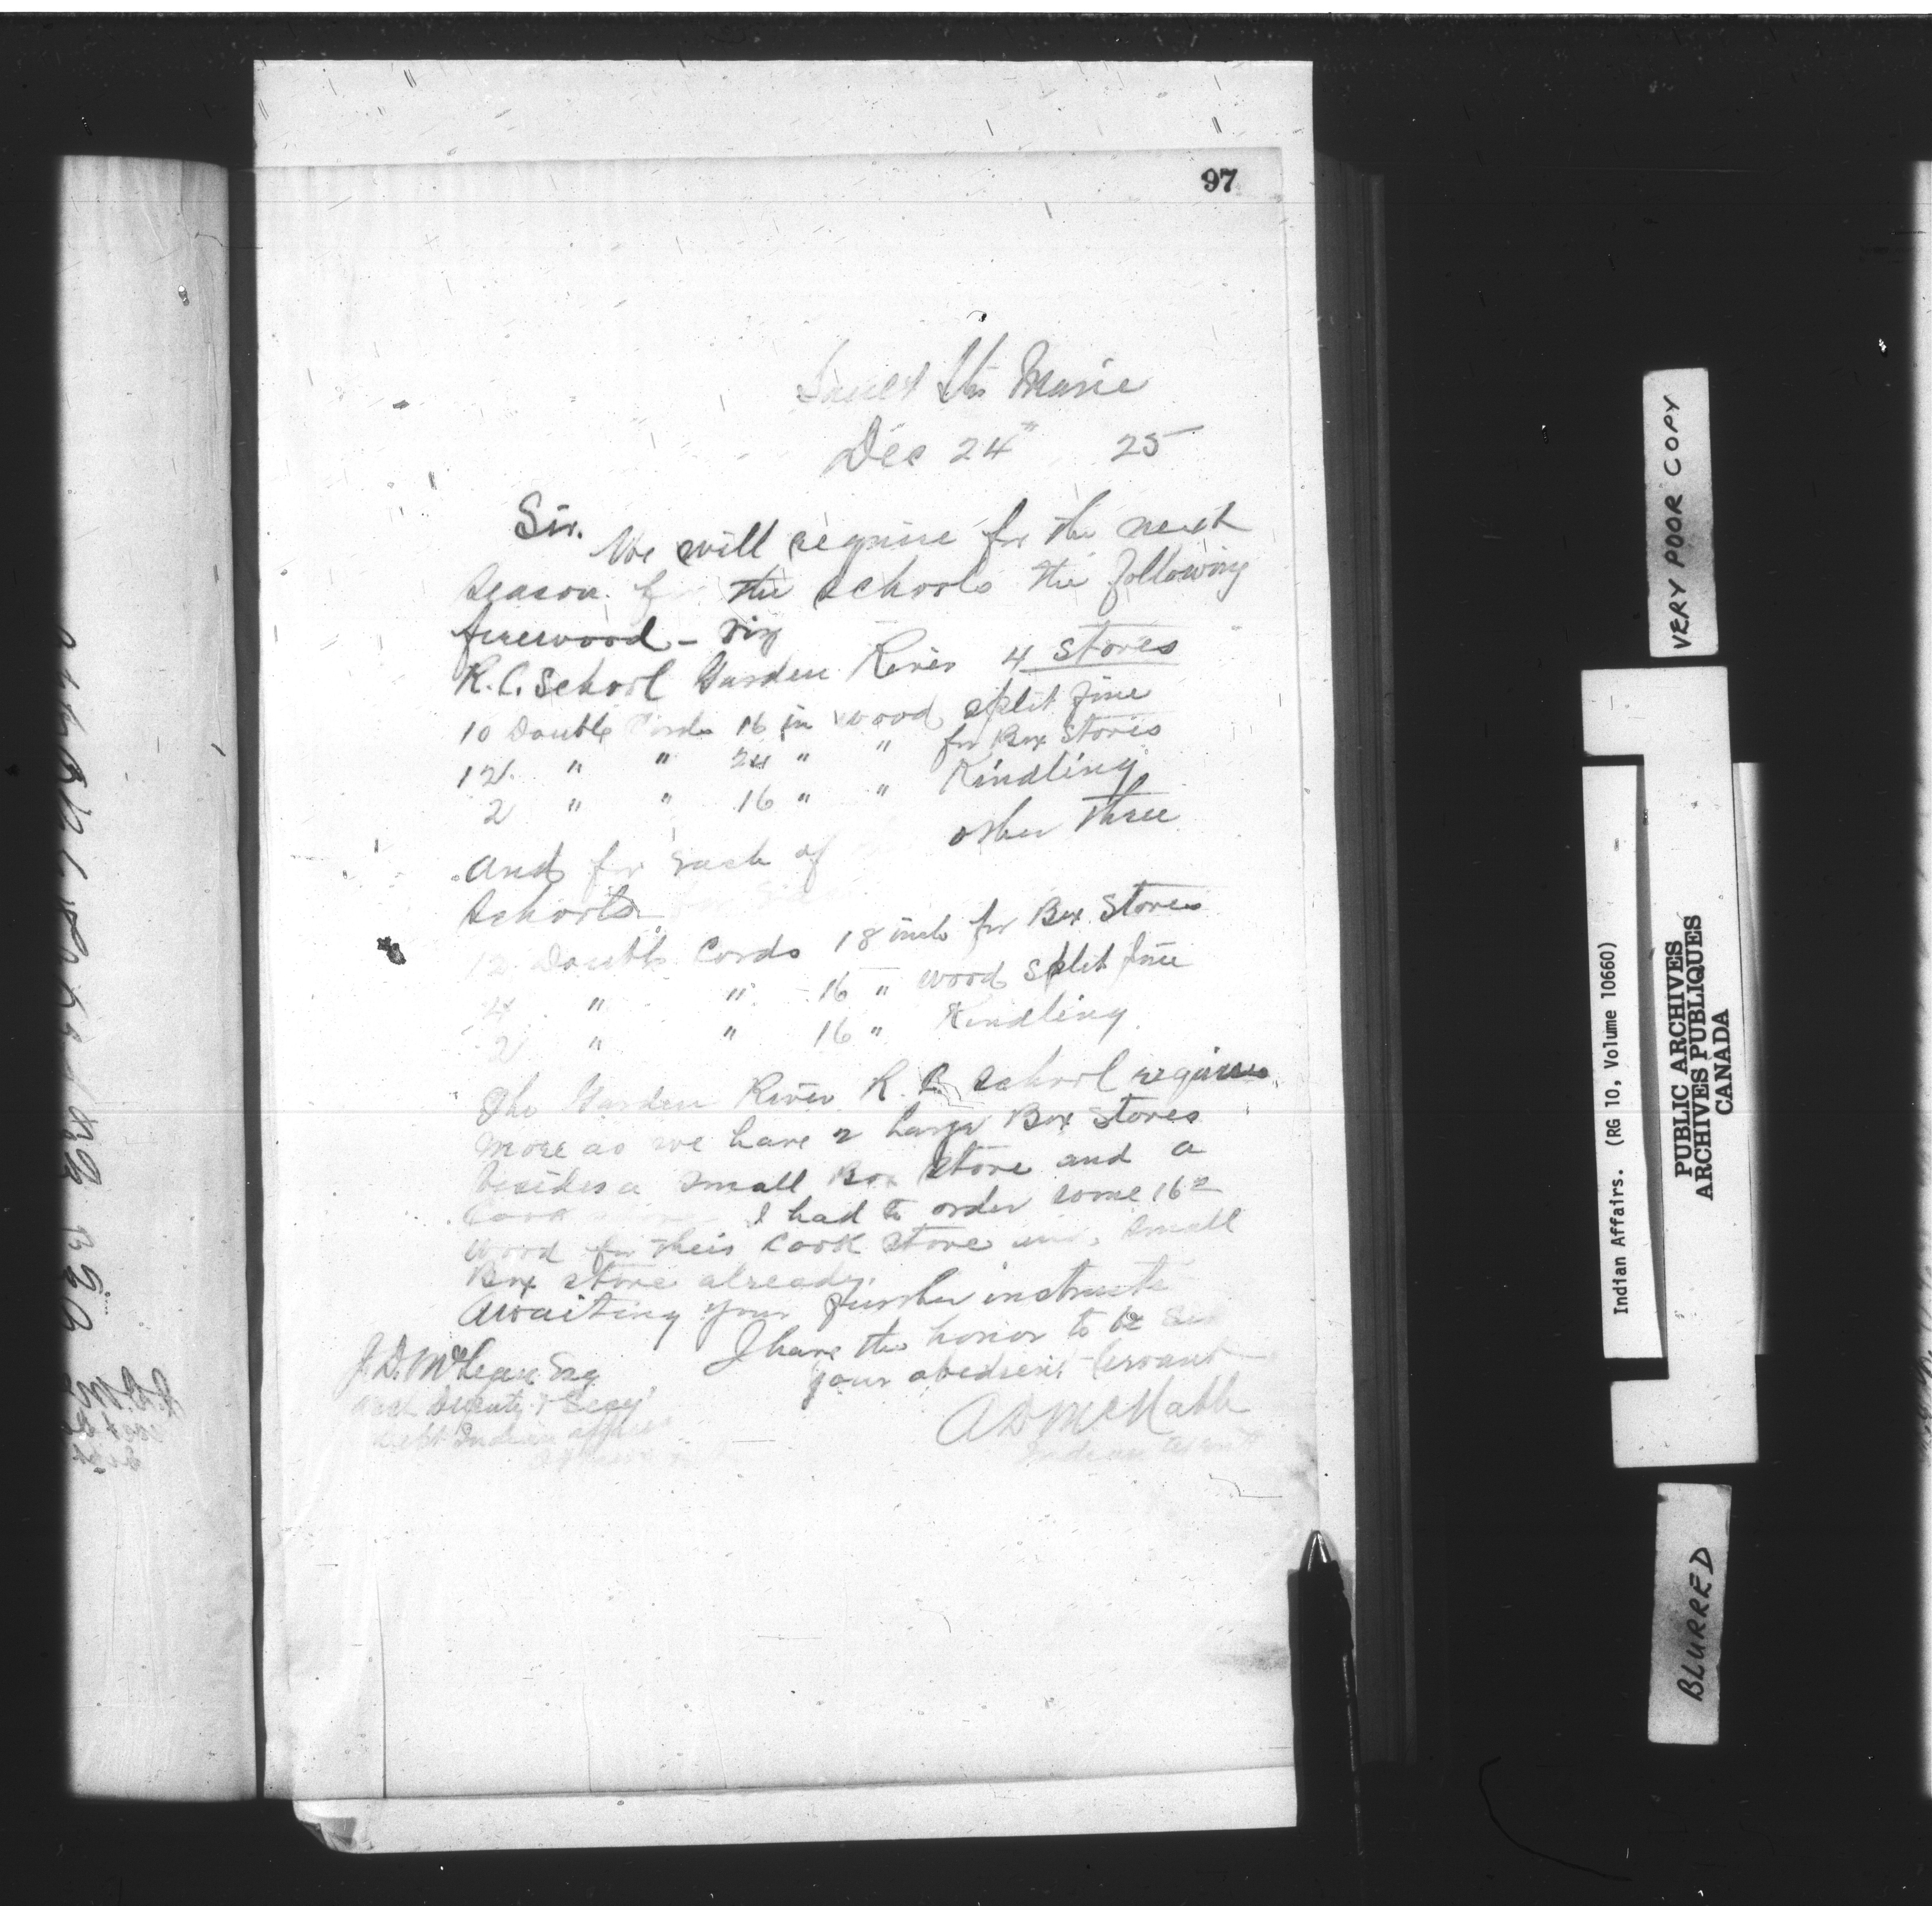 97
Sault Ste Marie
Dec 24" 25
Sir.
We will require for the next
season for the schools the following
firewood - viz
R.C. School Garden River 4 stoves
10 Double Cords 16 in wood split fine
12 " " 24 " " for Box Stoves
2 " " 16 " " Kindling
and for each of other three
Schools
12 Double Cords 18 inch for Box Stoves
4 " " 16 " wood split fine
2 " " 16 " Kindling
The Garden River R.C. School requires
more as we have 2 large Box Stoves
besides a small Box stove and a
Cook I had to order some 16"
wood for their Cook Stove small
Box stove already.
Awaiting your further
I have the honor to be
your obedient Servant
J.D. McLean Esq
Asst Deputy & Secy
Dept Indian Affairs
A D McNabb
Indian Agent
VERY POOR COPY
Indian Affairs. (RG 10, Volume 10660)
PUBLIC ARCHIVES
ARCHIVES PUBLIQUES
CANADA
BLURRED